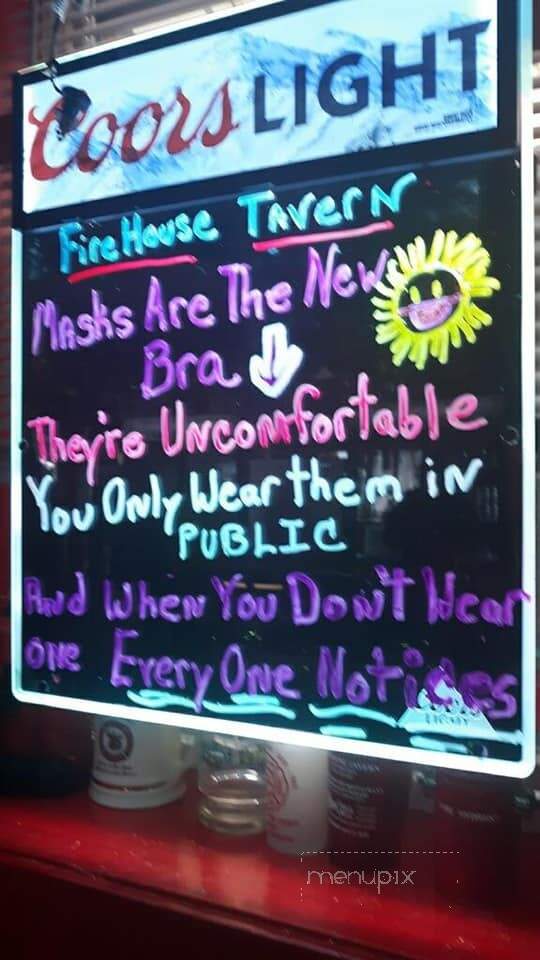 Coors LIGHT
FireHouse TAverN
Masks Are The New
Bra
They're UNcomfortable
You ONly Wear them iN
PUBLIC
And WheN You DoN't Wear
oNe Every ONe Notices
LIGHT
menupix